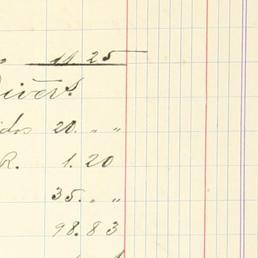 11.25
Divers
20. " "
R. 1.20
35. " "
98.83